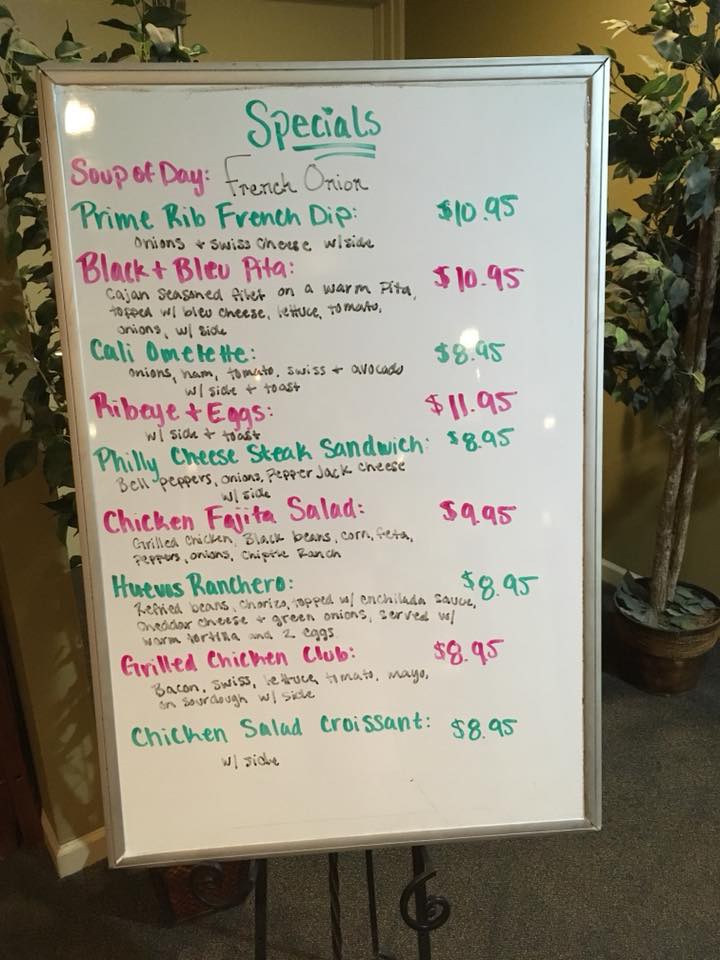 Specials
Soup of Day: French Onion
Prime Rib French Dip: $10.95
Onions + Swiss Cheese w/side
Black + Bleu Pita: $10.95
Cajan Seasoned filet on a warm Pita,
topped w/ bleu cheese, lettuce, tomato,
onions, w/ side
Cali Omelette: $8.95
onions, ham, tomato, swiss + avocado
w/ side + toast
Ribeye + Eggs: $11.95
w/ side + toast
Philly Cheese Steak Sandwich: $8.95
Bell peppers, onions, Pepper Jack cheese
w/ side
Chicken Fajita Salad: $9.95
Grilled chicken, Black beans, corn, feta,
Peppers, onions, Chiptle Ranch
Huevos Ranchero: $8.95
Refried beans, chorizo, topped w/ enchilada sauce,
cheddar cheese + green onions, served w/
warm tortilla and 2 eggs
Grilled Chicken Club: $8.95
Bacon, swiss, lettuce, tomato, mayo,
on sourdough w/ side
Chicken Salad Croissant: $8.95
w/ side